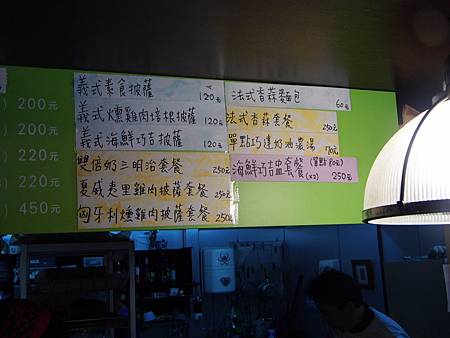 200元
200元
200元
220元
220元
450元
義式素食披薩 120元
義式燻雞肉培根披薩 120元
義式海鮮巧吉披薩 120元
雙倍奶三明治套餐 250元
夏威夷里雞肉披薩套餐 250元
匈牙利燻雞肉披薩套餐 250元
法式香蒜麵包 60元
法式香蒜套餐 250元
單點巧達奶油濃湯 170元
海鮮巧吉盅套餐 (單點80元) (x2) 250元